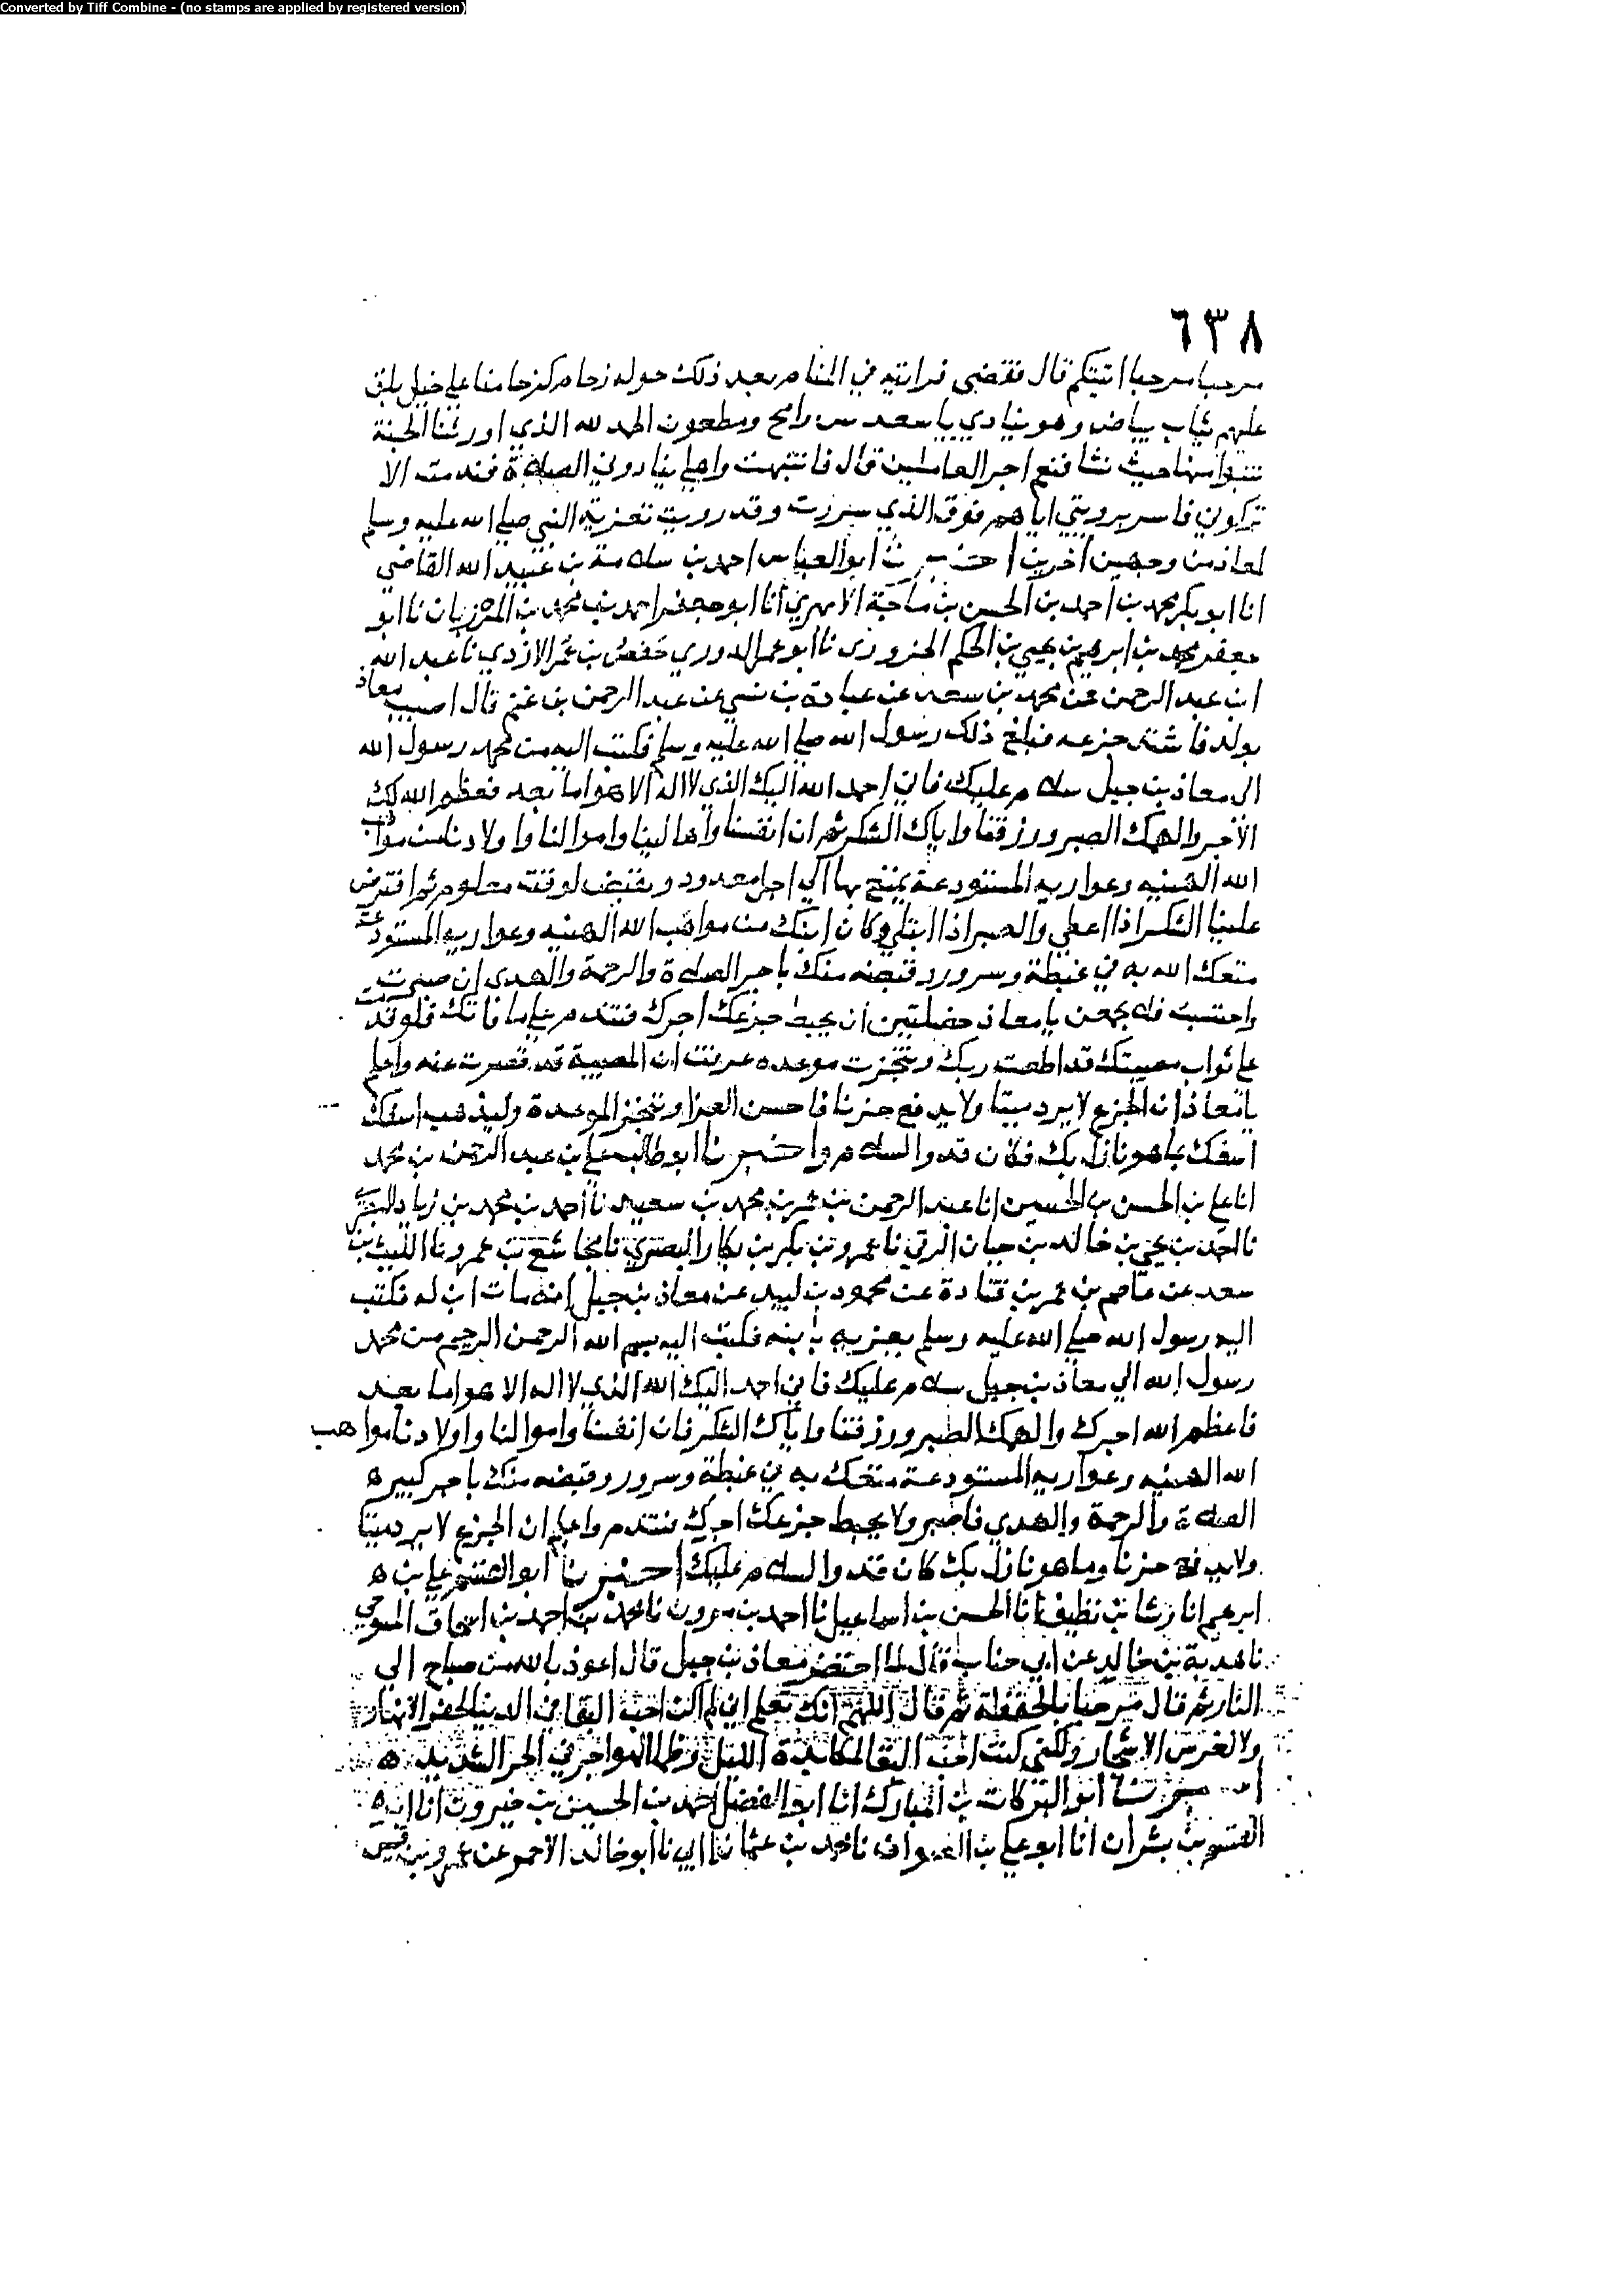 Converted by Tiff Combine - (no stamps are applied by registered version)
٦٣٨
مرحبا مرحبا اتيتكم قال فقضى فرايته في المنام بعد ذلك حوله زحام كزحامنا على خيل بلق
عليهم ثياب بياض وهو ينادي يا سعد بين رامح ومطعون الحمد لله الذي اورثنا الجنة
نتبوا منها حيث نشا فنعم اجر العاملين قال فانتبهت
تركوني فاسر برويتي اياهم فوق الذي سررت وقد رويت تعزية النبي صلى الله عليه وسلم
لمعاذ من وجهين اخرين اخبرنا ابو العباس احمد بن سلامة بن عبيد الله القاضي
انا ابو بكر محمد بن احمد بن الحسن بن ماجة الابهري انا ابو جعفر احمد بن محمد بن المرزبان نا ابو
جعفر محمد بن ابرهيم بن يحيى بن الحكم الحزوري نا ابو عمر الدوري حفص بن عمر الازدي نا عبد الله
ابن عبد الرحمن عن محمد بن سعد عن عبادة بن نسي عن عبد الرحمن بن غنم قال اصيب معاذ
بولد فاشتد جزعه فبلغ ذلك رسول الله صلى الله عليه وسلم فكتب اليه من محمد رسول الله
الى معاذ بن جبل سلام عليك فاني احمد الله اليك الذي لا اله الا هو اما بعد فعظم الله لك
الاجر والهمك الصبر ورزقنا واياك الشكر ثم ان انفسنا واهالينا واموالنا واولادنا من مواهب
الله الهنيه وعواريه المستودعة يمتع بها الى اجل معدود ويقبض لوقت معلوم ثم افترض
علينا الشكر اذا اعطى والصبر اذا ابتلي وكان ابنك من مواهب الله الهنيه وعواريه المستودعة
متعك الله به في غبطة وسرور وقبضه منك باجر الصلاة والرحمة والهدى ان صبرت
واحتسبت فلا يجمعن يا معاذ خصلتين ان يحبط جزعك اجرك فتندم على ما فاتك فلو قدمت
على ثواب مصيبتك قد اطعت ربك وتنجزت موعده عرفت ان المصيبة قد قصرت عنه واعلم
يا معاذ ان الجزع لا يرد ميتا ولا يدفع حزنا فاحسن العزا وتنجز الموعدة وليذهب اسفك
ما هو نازل بك فكان قد والسلام واخبرنا ابو طالب علي بن عبد الرحمن بن محمد
انا علي بن الحسن بن الحسين انا عبد الرحمن بن عمر بن محمد بن سعيد نا احمد بن محمد بن زياد
نا احمد بن يحيى بن خالد بن حيان الرقي نا عمرو بن بكر بن بكار البصري نا مجاشع بن عمرو نا الليث بن
سعد عن عاصم بن عمر بن قتادة عن محمود بن لبيد عن معاذ بن جبل انه مات ابن له فكتب
اليه رسول الله صلى الله عليه وسلم يعزيه بابنه فكتب اليه بسم الله الرحمن الرحيم من محمد
رسول الله الى معاذ بن جبل سلام عليك فاني احمد اليك الله الذي لا اله الا هو اما بعد
فاعظم الله اجرك والهمك الصبر ورزقنا واياك الشكر فان انفسنا واموالنا واولادنا مواهب
الله الهنيه وعواريه المستودعة متعك به في غبطة وسرور وقبضه منك باجر كبير ه
الصلاة والرحمة والهدي فاصبر ولا يحبط جزعك اجرك فتندم واعلم ان الجزع لا يرد ميتا
ولا يدفع حزنا وما هو نازل بك كان قد والسلام عليك اخبرنا ابو القسم علي بن ه
ابرهيم انا رشا بن نظيف انا الحسن بن اسماعيل نا احمد بن مروان نا محمد بن احمد بن اسحاق
نا هدبة بن خالد عن ابي جناب قال لما احتضر معاذ بن جبل قال اعوذ بالله من صباح الى
النار ثم قال مرحبا ثم قال اللهم انك تعلم اني لم اكن احب البقا في الدنيا لحفر الانهار
ولا لغرس الاشجار ولكني كنت احب البقا لمكابدة الليل وظما الهواجر في الحر الشديد ه
اخبرنا ابو البركات بن المبارك انا ابو الفضل احمد بن الحسين بن خيرون انا ابو ه
القسم بن بشران انا ابو علي بن الصواف نا محمد بن عثمان نا ابي نا ابو خالد الاحمر عن عمرو بن قيس